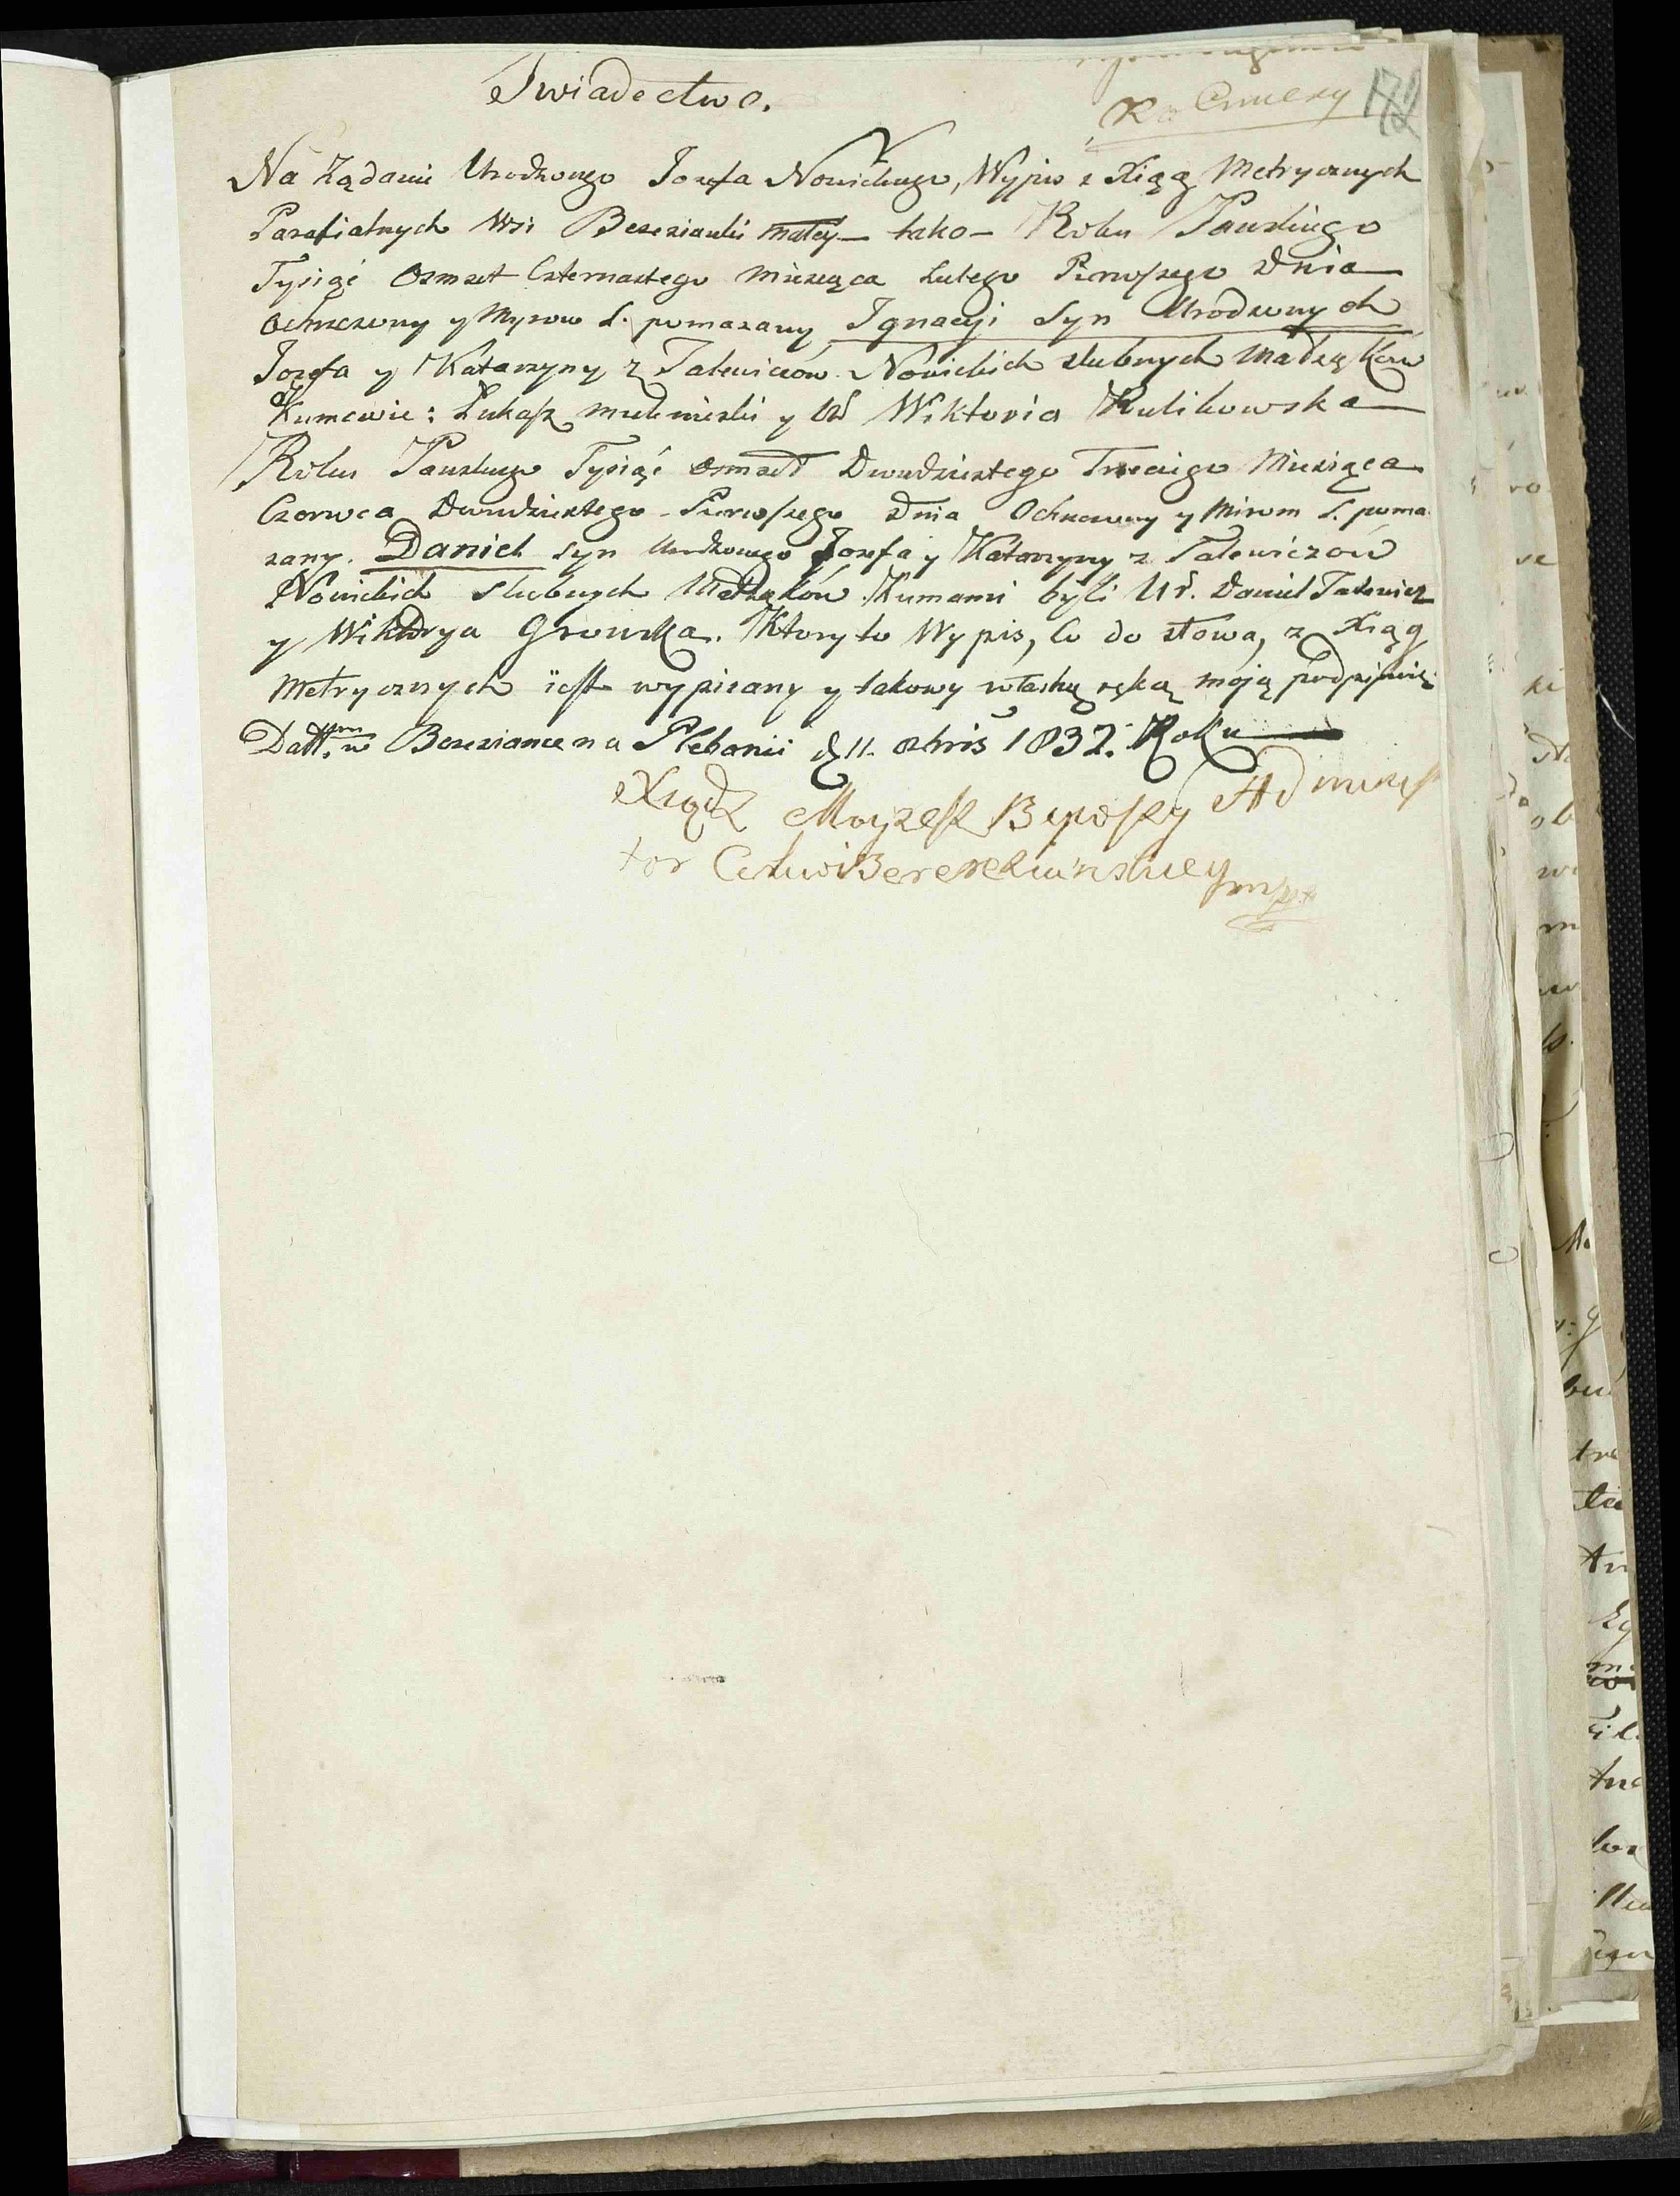 Swiadectwo.
172
Na Żądanie Urodzonego Jozefa Nowickiego, Wypis z Xiąg Metrycznych
Parafialnych Wsi Berezianki małey tako Roku Pańskiego
Tysiąć Osmset Czternastego miesiąca Lutego Pierwszego Dnia
Ochrzczony y Myrom S. pomazany Ignacyi Syn Urodzonych
Jozefa y Katarzyny z Talewiczów Nowickich slubnych Małżąków
Kumowie: Łukasz y Ur Wiktoria Kulikowska
Roku Pańskiego Tysiąć osmset Dwudziestego Trzeciego Miesiąca
Czerwca Dwudziestego Pierwszego Dnia Ochrzczony y Mirom S. poma
zany. Daniel syn Urodzonego Jozefa y Katarzyny z Talewiczów
Nowickich slubnych Małżąków. Kumami byli Ur. Daniel Talewicz
y Wiktorya Growska. Ktory to Wypis, Co do słowa, z Xiąg
Metrycznych iest wypisany y takowy własną ręką moją podpisuię
Datt. w Bereziance na Plebanii d 11. 8bris 1832. Roku
Xiądz Moyzesz Administra
tor Cerkwi Berezeziańskiey mp